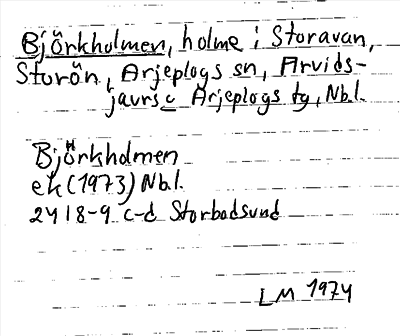 Björkholmen, holme i Storavan,
Storön, Arjeplogs sn, Arvids-
jaurs o Arjeplogs tg, Nbl.
Björkholmen
ek (1973) Nbl.
24 I 8-9 c-d Storbodsund
LM 1974